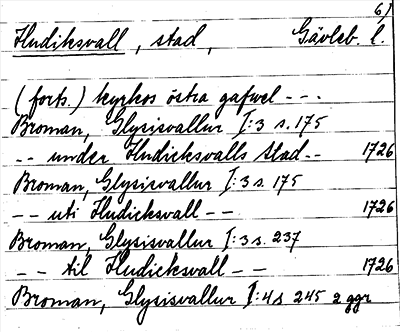 6)
Hudiksvall, stad, Gävleb. l.
(forts.) kyrkos östra gafwel - - -
Broman, Glysisvallur I:3 s. 175
- - under Hudicksvalls Stad - - 1726
Broman, Glysisvallur I:3 s. 175
- - uti Hudicksvall - - 1726
Broman, Glysisvallur I:3 s. 237
- - til Hudicksvall - - 1726
Broman, Glysisvallur I:4 s 245 2 ggr